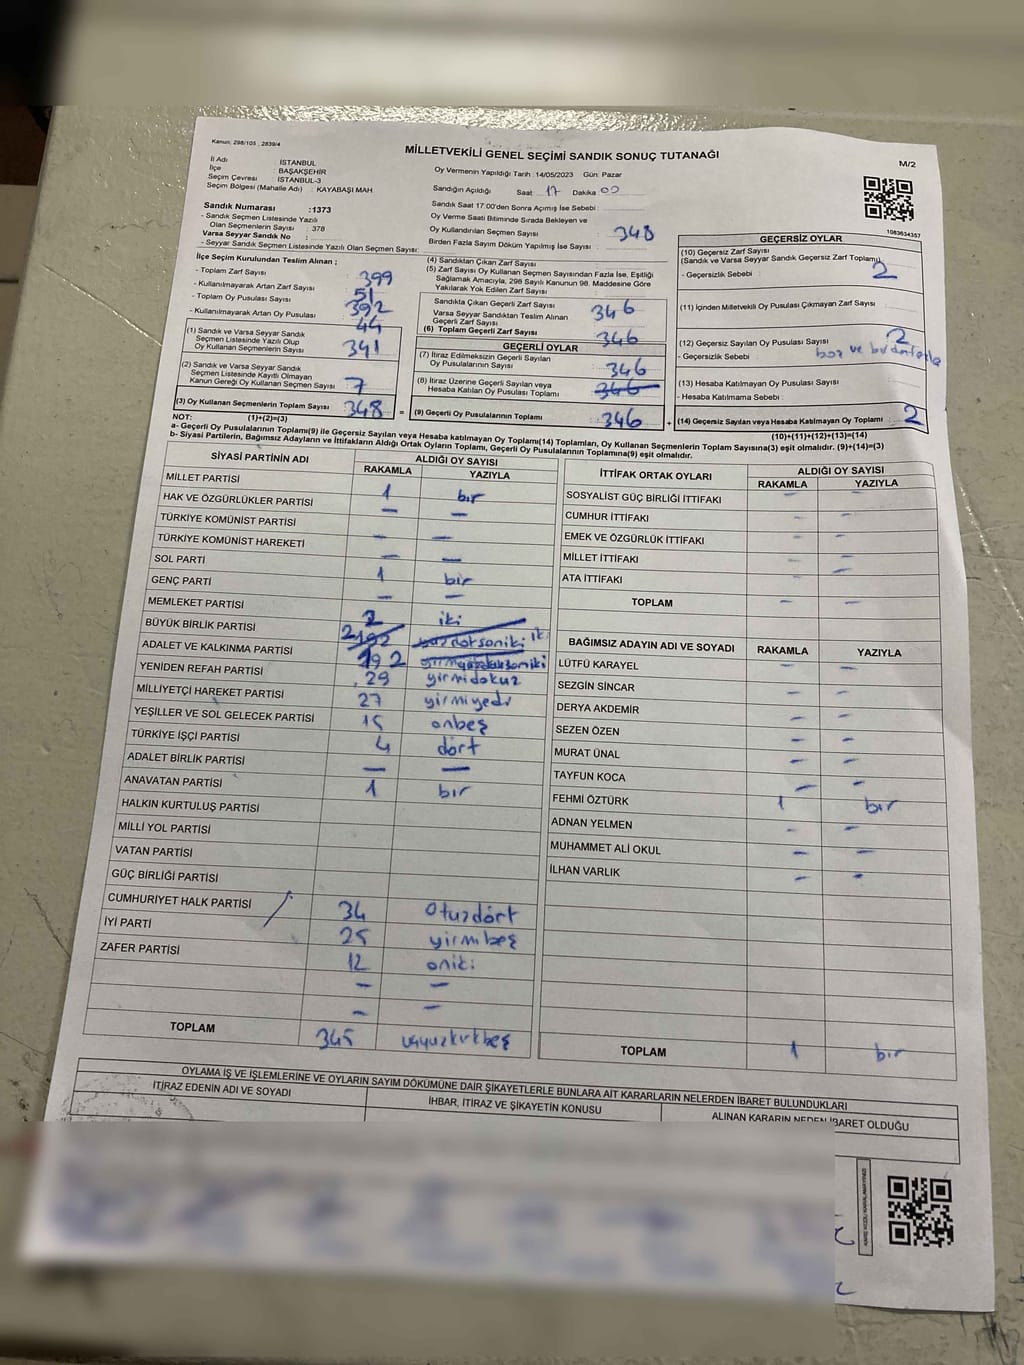 Kanun; 298/105 , 2839/4
MİLLETVEKİLİ GENEL SEÇİMİ SANDIK SONUÇ TUTANAĞI
M/2
İl Adı : İSTANBUL
İlçe : BAŞAKŞEHİR
Seçim Çevresi : İSTANBUL-3
Seçim Bölgesi (Mahalle Adı) : KAYABAŞI MAH.
Oy Vermenin Yapıldığı Tarih :14/05/2023 Gün: Pazar
Sandığın Açıldığı Saat 17 Dakika 00
Sandık Saat 17.00'den Sonra Açımış İse Sebebi :
Oy Verme Saati Bitiminde Sırada Bekleyen ve
Oy Kullandırılan Seçmen Sayısı : 348
Birden Fazla Sayım Döküm Yapılmış İse Sayısı :
1083634357
Sandık Numarası :1373
- Sandık Seçmen Listesinde Yazılı
Olan Seçmenlerin Sayısı : 378
Varsa Seyyar Sandık No :
- Seyyar Sandık Seçmen Listesinde Yazılı Olan Seçmen Sayısı:
İlçe Seçim Kurulundan Teslim Alınan ;
- Toplam Zarf Sayısı : 399
- Kullanılmayarak Artan Zarf Sayısı : 51
- Toplam Oy Pusulası Sayısı : 392
- Kullanılmayarak Artan Oy Pusulası : 44
(1) Sandık ve Varsa Seyyar Sandık
Seçmen Listesinde Yazılı Olup
Oy Kullanan Seçmenlerin Sayısı : 341
(2) Sandık ve Varsa Seyyar Sandık
Seçmen Listesinde Kayıtlı Olmayan
Kanun Gereği Oy Kullanan Seçmen Sayısı : 7
(3) Oy Kullanan Seçmenlerin Toplam Sayısı : 348
(1)+(2)=(3)
(4) Sandıktan Çıkan Zarf Sayısı :
(5) Zarf Sayısı Oy Kullanan Seçmen Sayısından Fazla İse, Eşitliği
Sağlamak Amacıyla, 298 Sayılı Kanunun 98. Maddesine Göre
Yakılarak Yok Edilen Zarf Sayısı :
Sandıkta Çıkan Geçerli Zarf Sayısı : 346
Varsa Seyyar Sandıktan Teslim Alınan
Geçerli Zarf Sayısı :
(6) Toplam Geçerli Zarf Sayısı : 346
GEÇERLİ OYLAR
(7) İtiraz Edilmeksizin Geçerli Sayılan
Oy Pusulalarının Sayısı : 346
(8) İtiraz Üzerine Geçerli Sayılan veya
Hesaba Katılan Oy Pusulası Toplamı : 346
= (9) Geçerli Oy Pusulalarının Toplamı : 346
GEÇERSİZ OYLAR
(10) Geçersiz Zarf Sayısı
(Sandık ve Varsa Seyyar Sandık Geçersiz Zarf Toplamı) : 2
- Geçersizlik Sebebi :
(11) İçinden Milletvekili Oy Pusulası Çıkmayan Zarf Sayısı :
(12) Geçersiz Sayılan Oy Pusulası Sayısı : 2
- Geçersizlik Sebebi : boş ve
(13) Hesaba Katılmayan Oy Pusulası Sayısı :
- Hesaba Katılmama Sebebi :
+ (14) Geçersiz Sayılan veya Hesaba Katılmayan Oy Toplamı : 2
(10)+(11)+(12)+(13)=(14)
NOT:
a- Geçerli Oy Pusulalarının Toplamı(9) ile Geçersiz Sayılan veya Hesaba katılmayan Oy Toplamı(14) Toplamları, Oy Kullanan Seçmenlerin Toplam Sayısına(3) eşit olmalıdır. (9)+(14)=(3)
b- Siyasi Partilerin, Bağımsız Adayların ve İttifakların Aldığı Ortak Oyların Toplamı, Geçerli Oy Pusulalarının Toplamına(9) eşit olmalıdır.
SİYASİ PARTİNİN ADI ALDIĞI OY SAYISI
RAKAMLA YAZIYLA
MİLLET PARTİSİ 1 bir
HAK VE ÖZGÜRLÜKLER PARTİSİ — —
TÜRKİYE KOMÜNİST PARTİSİ — —
TÜRKİYE KOMÜNİST HAREKETİ — —
SOL PARTİ 1 bir
GENÇ PARTİ — —
MEMLEKET PARTİSİ 2 iki
BÜYÜK BİRLİK PARTİSİ 2 192 yüzdoksaniki iki
ADALET VE KALKINMA PARTİSİ 192 yüzdoksaniki
YENİDEN REFAH PARTİSİ 29 yirmidokuz
MİLLİYETÇİ HAREKET PARTİSİ 27 yirmiyedi
YEŞİLLER VE SOL GELECEK PARTİSİ 15 onbeş
TÜRKİYE İŞÇİ PARTİSİ 4 dört
ADALET BİRLİK PARTİSİ — —
ANAVATAN PARTİSİ 1 bir
HALKIN KURTULUŞ PARTİSİ
MİLLİ YOL PARTİSİ
VATAN PARTİSİ
GÜÇ BİRLİĞİ PARTİSİ
CUMHURİYET HALK PARTİSİ 34 Otuzdört
İYİ PARTİ 25 yirmibeş
ZAFER PARTİSİ 12 oniki
— —
— —
TOPLAM 345 üçyüzkırkbeş
İTTİFAK ORTAK OYLARI ALDIĞI OY SAYISI
RAKAMLA YAZIYLA
SOSYALİST GÜÇ BİRLİĞİ İTTİFAKI — —
CUMHUR İTTİFAKI — —
EMEK VE ÖZGÜRLÜK İTTİFAKI — —
MİLLET İTTİFAKI — —
ATA İTTİFAKI — —
TOPLAM — —
BAĞIMSIZ ADAYIN ADI VE SOYADI RAKAMLA YAZIYLA
LÜTFÜ KARAYEL — —
SEZGİN SİNCAR — —
DERYA AKDEMİR — —
SEZEN ÖZEN — —
MURAT ÜNAL — —
TAYFUN KOCA — —
FEHMİ ÖZTÜRK 1 bir
ADNAN YELMEN — —
MUHAMMET ALİ OKUL — —
İLHAN VARLIK — —
TOPLAM 1 bir
OYLAMA İŞ VE İŞLEMLERİNE VE OYLARIN SAYIM DÖKÜMÜNE DAİR ŞİKAYETLERLE BUNLARA AİT KARARLARIN NELERDEN İBARET BULUNDUKLARI
İTİRAZ EDENİN ADI VE SOYADI İHBAR, İTİRAZ VE ŞİKAYETİN KONUSU ALINAN KARARIN NEDEN İBARET OLDUĞU
KARE KODU KARALAMAYINIZ!